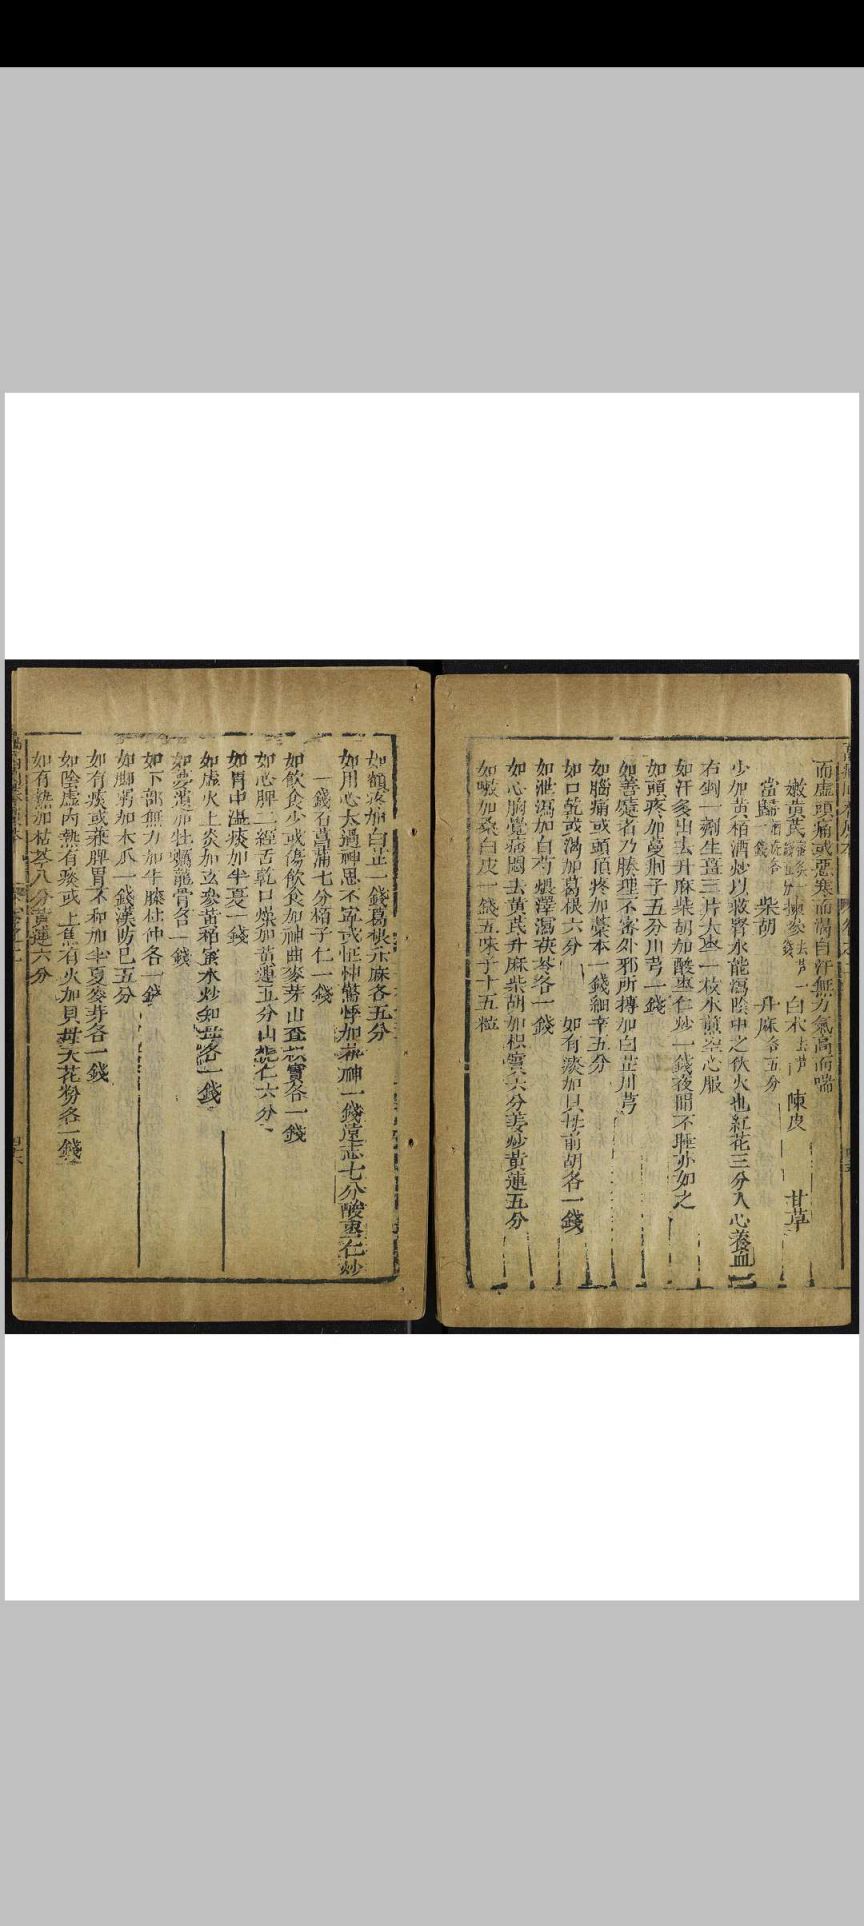 而虛頭痛或惡寒而渴自汗無力氣高而喘
嫩黃芪 白朮 陳皮 甘草
當歸 柴胡 升麻各五分
少加黃栢酒炒以救腎水能瀉陰中之伏火也紅花三分入心養血
右剉一劑生薑三片大棗一枚水煎空心服
如汗多出去升麻柴胡加酸棗仁炒一錢夜間不睡亦如之
如頭疼加蔓荆子五分川芎一錢
如善嚏者乃腠理不密外邪所搏加白芷川芎
如腦痛或頭頂疼加藁本一錢細辛五分
如口乾或渴加葛根六分 如有痰加貝母前胡各一錢
如泄瀉加白芍煨澤瀉茯苓各一錢
如心胸覺痞悶去黃芪升麻柴胡加枳實六分姜炒黃連五分
如嗽加桑白皮一錢五味子十五粒
如額疼加白芷一錢葛根升麻各五分
如用心太過神思不寧或怔忡驚悸加茯神一錢遠志七分酸棗仁炒
一錢石菖蒲七分栢子仁一錢
如飲食少或傷飲食加神曲麥芽山查枳實各一錢
如心脾二經舌乾口燥加黃連五分山梔仁六分
如胃中濕痰加半夏一錢
如虛火上炎加玄參黃栢蜜水炒知母各一錢
如夢遺加牡蠣龍骨各一錢
如下部無力加牛膝杜仲各一錢
如脚弱加木瓜一錢漢防已五分
如有痰或兼脾胃不和加半夏麥芽各一錢
如陰虛內熱有痰或上焦有火加貝母天花粉各一錢
如有熱加枯芩八分黃連六分